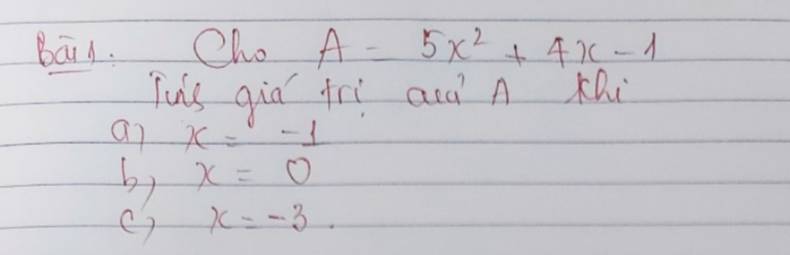 Bài 1: Cho A = 5x² + 4x - 1
Tính giá trị của A khi
a) x = -1
b) x = 0
c) x = -3.